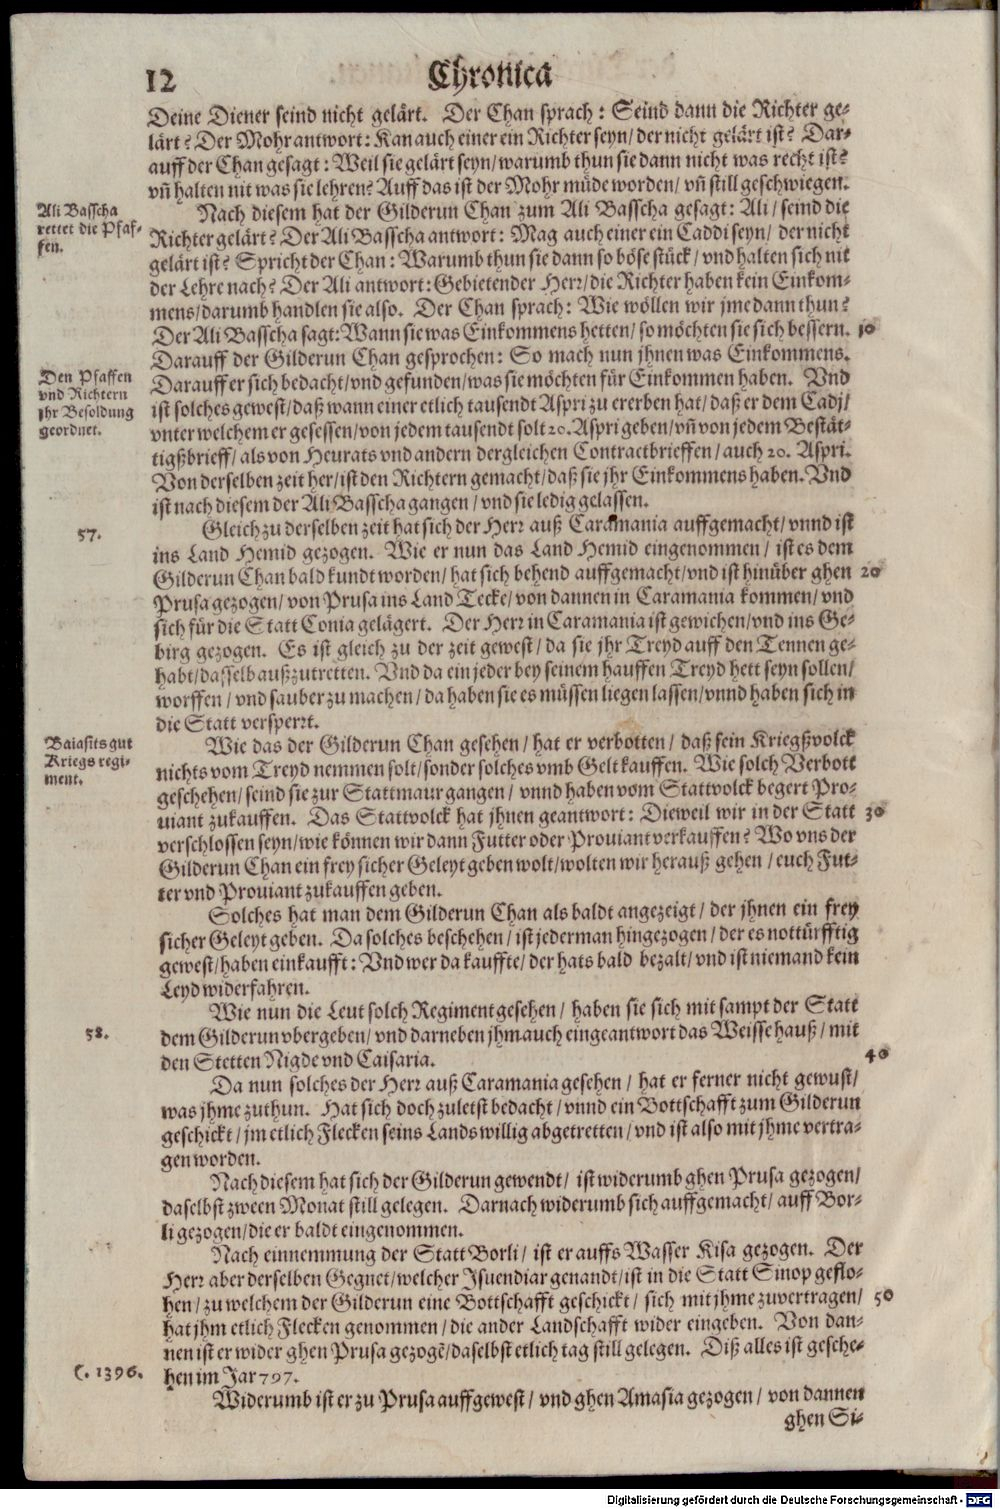 12
Chronica
Deine Diener seind nicht gelärt. Der Chan sprach: Seind dann die Richter ge-
lärt? Der Mohr antwort: Kan auch einer ein Richter seyn/ der nicht gelärt ist? Dar-
auff der Chan gesagt: Weil sie gelärt seyn/ warumb thun sie dann nicht was recht ist?
vñ halten nit was sie lehren? Auff das ist der Mohr müde worden/ vñ still geschwiegen.
Ali Bassha
rettet die Pfaf-
fen.
Nach diesem hat der Gilderun Chan zum Ali Basscha gesagt: Ali/ seind die
Richter gelärt? Der Ali Basscha antwort: Mag auch einer ein Caddi seyn/ der nicht
gelärt ist? Spricht der Chan: Warumb thun sie dann so böse stück/ vnd halten sich nit
der Lehre nach? Der Ali antwort: Gebietender Herr/ die Richter haben kein Einkom-
mens/ darumb handlen sie also. Der Chan sprach: Wie wöllen wir jme dann thun?
Der Ali Basscha sagt: Wann sie was Einkommens hetten/ so möchten sie sich bessern. 10
Darauff der Gilderun Chan gesprochen: So mach nun jhnen was Einkommens.
Den Pfaffen
vnd Richtern
jhr Besoldung
geordnet.
Darauff er sich bedacht/ vnd gefunden/ was sie möchten für Einkommen haben. Vnd
ist solches gewest/ daß wann einer etlich tausendt Aspri zu ererben hat/ daß er dem Cadj/
vnter welchem er gesessen/ von jedem tausendt solt 20. Aspri geben/ vñ von jedem Bestät-
tigßbrieff/ als von Heurats vnd andern dergleichen Contractbrieffen/ auch 20. Aspri.
Von derselben zeit her/ ist den Richtern gemacht/ daß sie jhr Einkommens haben. Vnd
ist nach diesem der Ali Basscha gangen/ vnd sie ledig gelassen.
57.
Gleich zu derselben zeit hat sich der Herr auß Caramania auffgemacht/ vnnd ist
ins Land Hemid gezogen. Wie er nun das Land Hemid eingenommen/ ist es dem
Gilderun Chan bald kundt worden/ hat sich behend auffgemacht/ vnd ist hinüber ghen 20
Prusa gezogen/ von Prusa ins Land Tecke/ von dannen in Caramania kommen/ vnd
sich für die Statt Conia gelägert. Der Herr in Caramania ist gewichen/ vnd ins Ge-
birg gezogen. Es ist gleich zu der zeit gewest/ da sie jhr Treyd auff den Tennen ge-
habt/ dasselb außzutretten. Vnd da ein jeder bey seinem hauffen Treyd hett seyn sollen/
worffen/ vnd sauber zu machen/ da haben sie es müssen liegen lassen/ vnnd haben sich in
die Statt versperrt.
Baiasits gut
Kriegs regi-
ment.
Wie das der Gilderun Chan gesehen/ hat er verbotten/ daß sein Kriegßvolck
nichts vom Treyd nemmen solt/ sonder solches vmb Gelt kauffen. Wie solch Verbott
geschehen/ seind sie zur Stattmaur gangen/ vnnd haben vom Stattvolck begert Pro-
uiant zukauffen. Das Stattvolck hat jhnen geantwort: Dieweil wir in der Statt 30
verschlossen seyn/ wie können wir dann Futter oder Prouiant verkauffen? Wo vns der
Gilderun Chan ein frey sicher Geleyt geben wolt/ wolten wir herauß gehen/ euch Fut-
ter vnd Prouiant zukauffen geben.
Solches hat man dem Gilderun Chan als baldt angezeigt/ der jhnen ein frey
sicher Geleyt geben. Da solches beschehen/ ist jederman hingezogen/ der es nottürfftig
gewest/ haben einkaufft: Vnd wer da kauffte/ der hats bald bezalt/ vnd ist niemand kein
Leyd widerfahren.
58.
Wie nun die Leut solch Regiment gesehen/ haben sie sich mit sampt der Statt
dem Gilderun vbergeben/ vnd darneben jhm auch eingeantwort das Weisse hauß/ mit
den Stetten Nigde vnd Caisaria. 40
Da nun solches der Herr auß Caramania gesehen/ hat er ferner nicht gewust/
was jhme zuthun. Hat sich doch zuletst bedacht/ vnnd ein Bottschafft zum Gilderun
geschickt/ jm etlich Flecken seins Lands willig abgetretten/ vnd ist also mit jhme vertra-
gen worden.
Nach diesem hat sich der Gilderun gewendt/ ist widerumb ghen Prusa gezogen/
daselbst zween Monat still gelegen. Darnach widerumb sich auffgemacht/ auff Bor-
li gezogen/ die er baldt eingenommen.
Nach einnemmung der Statt Borli/ ist er auffs Wasser Kisa gezogen. Der
Herr aber derselben Gegnet/ welcher Isuendiar genandt/ ist in die Statt Sinop geflo-
hen/ zu welchem der Gilderun eine Bottschafft geschickt/ sich mit jhme zuvertragen/ 50
hat jhm etlich Flecken genommen/ die ander Landschafft wider eingeben. Von dan-
nen ist er wider ghen Prusa gezogẽ/ daselbst etlich tag still gelegen. Diß alles ist gesche-
C. 1396.
hen im Jar 797.
Widerumb ist er zu Prusa auffgewest/ vnd ghen Amasia gezogen/ von dannen
ghen Si-
Digitalisierung gefördert durch die Deutsche Forschungsgemeinschaft - DFG